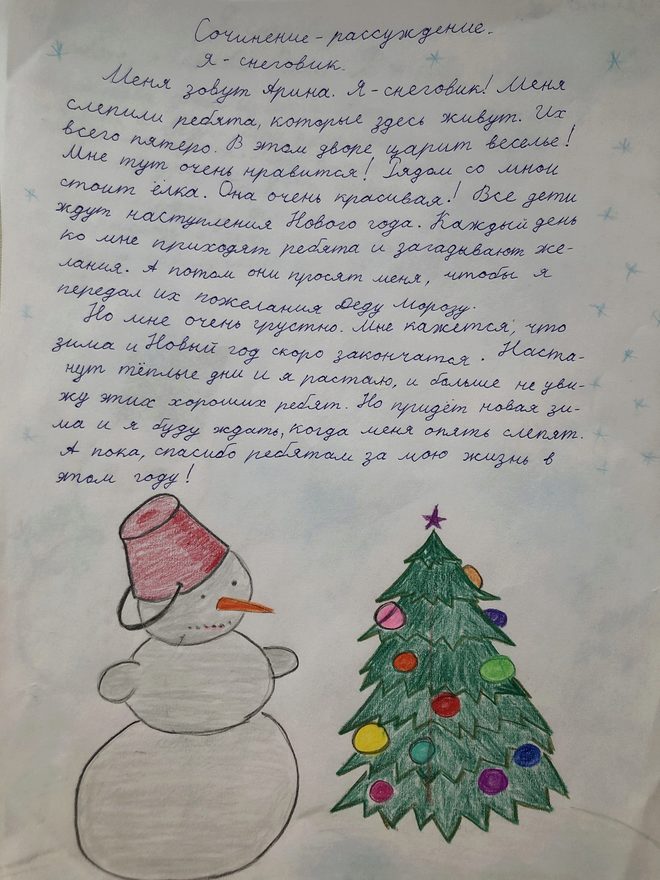 Сочинение - рассуждение.
Я - снеговик.
Меня зовут Арина. Я - снеговик! Меня
слепили ребята, которые здесь живут. Их
всего пятеро. В этом дворе царит веселье!
Мне тут очень нравится! Рядом со мной
стоит ёлка. Она очень красивая! Все дети
ждут наступления Нового года. Каждый день
ко мне приходят ребята и загадывают же-
лания. А потом они просят меня, чтобы я
передал их пожелания Деду Морозу.
Но мне очень грустно. Мне кажется, что
зима и Новый год скоро закончатся. Наста-
нут тёплые дни и я растаю, и больше не уви-
жу этих хороших ребят. Но придёт новая зи-
ма и я буду ждать, когда меня опять слепят.
А пока, спасибо ребятам за мою жизнь в
этом году!